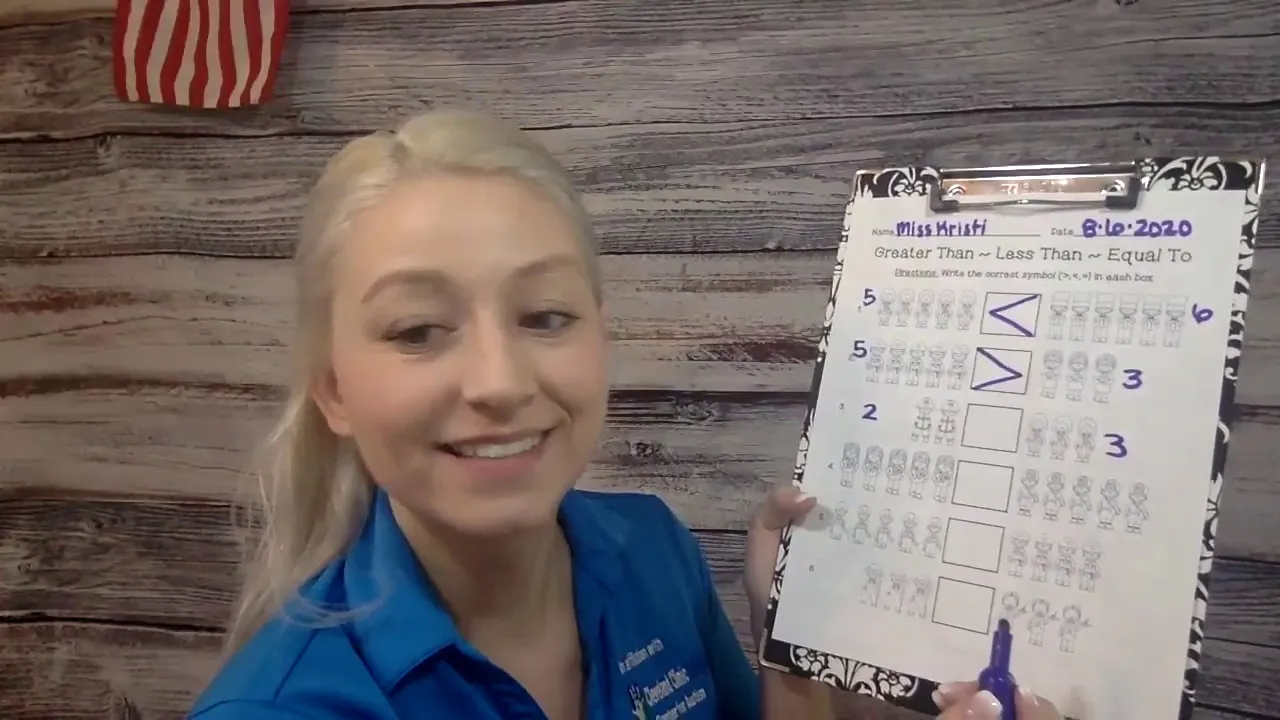 Name Miss Kristi Date 8·6·2020
Greater Than ~ Less Than ~ Equal To
Directions: Write the correct symbol (>, <, =) in each box.
5 < 6
5 > 3
3. 2 3
4.
6
in affiliation with
Cleveland Clinic
Center for Autism